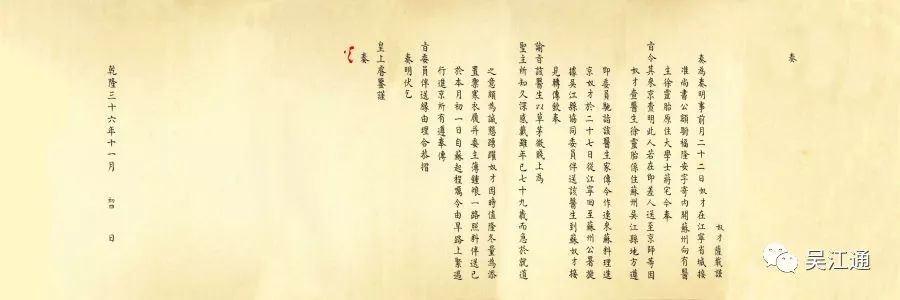 奏
奴才薩載謹
奏為奏明事前月二十二日奴才在江寧省城接
准尚書公額駙福隆安字寄內開蘇州向有醫
生徐靈胎原住大學士蔣宅今奉
旨令其來京查明此人若在即差人送至京師等因
奴才查醫生徐靈胎係住蘇州吳江縣地方遵
即委員馳詣該醫生家傳令作速來蘇料理進
京奴才於二十七日從江寧回至蘇州公署旋
據吳江縣協同委員伴送該醫生到蘇奴才接
見轉傳欽奉
諭旨該醫生以草茅微賤上為
聖主所知久深感戴雖年已七十九歲而急於就道
之意頗為誠懇踴躍奴才因時值隆冬量為添
置禦寒衣履并委主簿鍾娘一路照料伴送已
於本月初一日自蘇起程嚴令由旱路上緊遄
行進京所有遵奉傳
旨委員伴送緣由理合恭摺
奏明伏乞
皇上睿鑒謹
奏
乾隆三十六年十一月 初四 日
吴江通